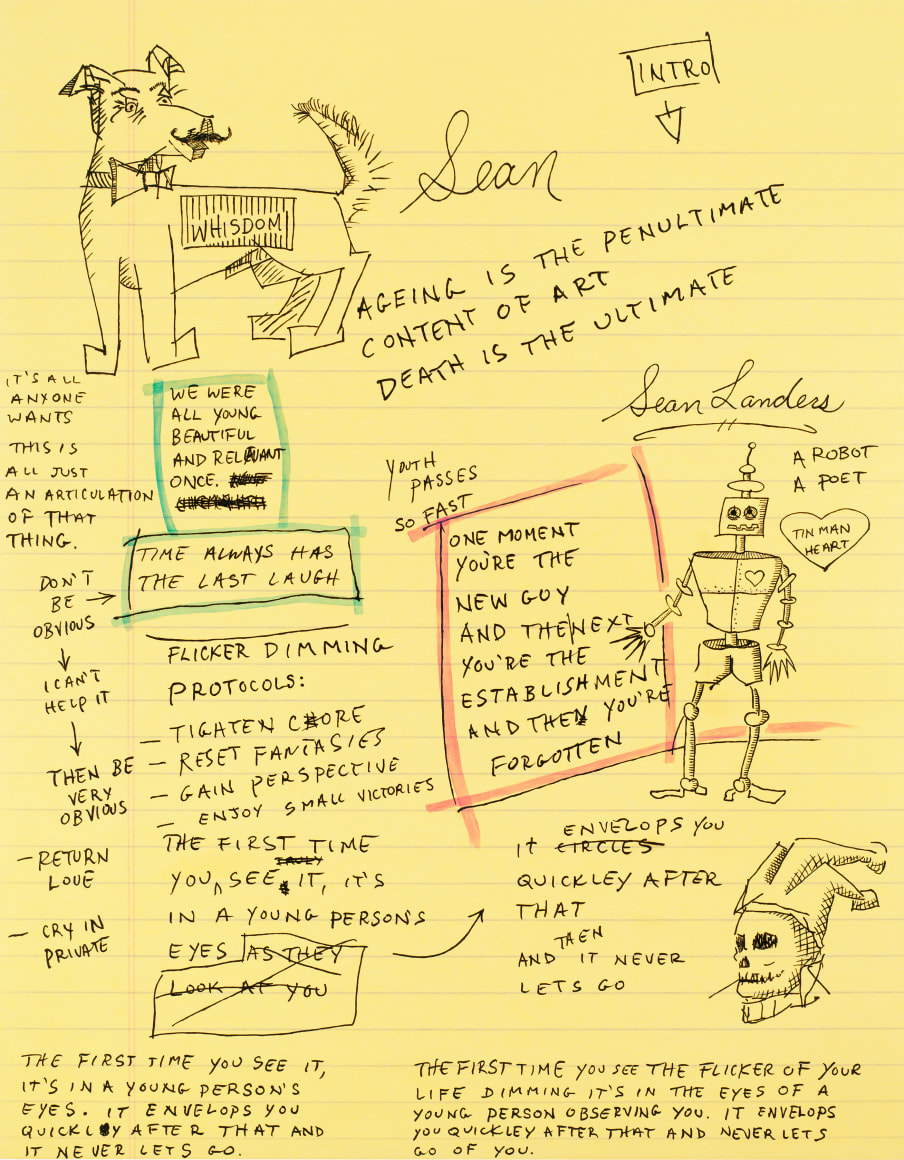 INTRO
Sean
WHISDOM
AGEING IS THE PENULTIMATE
CONTENT OF ART
DEATH IS THE ULTIMATE
IT'S ALL
ANYONE
WANTS
THIS IS
ALL JUST
AN ARTICULATION
OF THAT
THING.
WE WERE
ALL YOUNG
BEAUTIFUL
AND RELEVANT
ONCE.
TIME ALWAYS HAS
THE LAST LAUGH
DON'T
BE
OBVIOUS
I CAN'T
HELP IT
THEN BE
VERY
OBVIOUS
FLICKER DIMMING
PROTOCOLS:
– TIGHTEN CORE
– RESET FANTASIES
– GAIN PERSPECTIVE
– ENJOY SMALL VICTORIES
– RETURN
LOVE
– CRY IN
PRIVATE
Sean Landers
A ROBOT
A POET
TIN MAN
HEART
YOUTH
PASSES
SO FAST
ONE MOMENT
YOU'RE THE
NEW GUY
AND THE NEXT
YOU'RE THE
ESTABLISHMENT
AND THEN YOU'RE
FORGOTTEN
THE FIRST TIME
TRULY
YOU SEE IT, IT'S
IN A YOUNG PERSON'S
EYES AS THEY
LOOK AT YOU
ENVELOPS YOU
IT CIRCLES
QUICKLEY AFTER
THAT
THEN
AND IT NEVER
LETS GO
THE FIRST TIME YOU SEE IT,
IT'S IN A YOUNG PERSON'S
EYES. IT ENVELOPS YOU
QUICKLY AFTER THAT AND
IT NEVER LETS GO.
THE FIRST TIME YOU SEE THE FLICKER OF YOUR
LIFE DIMMING IT'S IN THE EYES OF A
YOUNG PERSON OBSERVING YOU. IT ENVELOPS
YOU QUICKLEY AFTER THAT AND NEVER LETS
GO OF YOU.